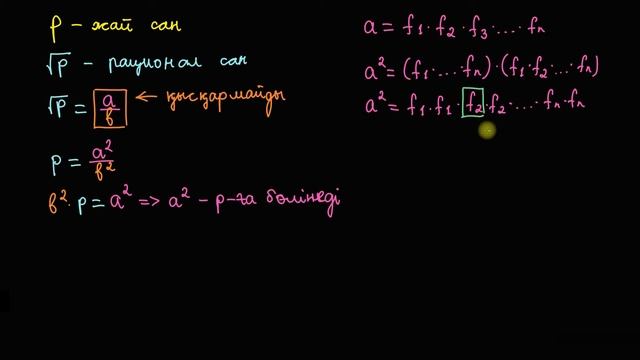 p – жай сан
√p – рационал сан
√p = a/в ← қысқармайды
p = a²/в²
в²·p = a² => a² – p-ға бөлінеді
a = f₁·f₂·f₃·...·fₙ
a² = (f₁·...·fₙ)·(f₁·f₂·...·fₙ)
a² = f₁·f₁·f₂·f₂·...·fₙ·fₙ